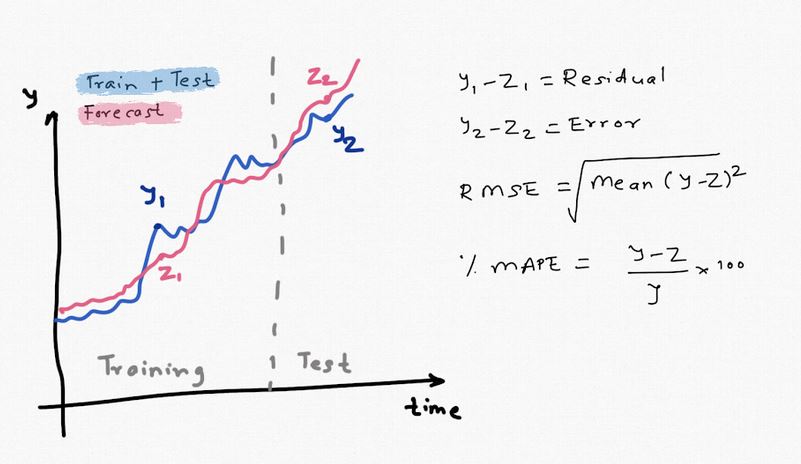 Train + Test
Forecast
y
y₁
z₁
z₂
y₂
Training
Test
time
y₁-z₁ = Residual
y₂-z₂ = Error
RMSE = √mean (y-z)²
% MAPE = (y-z)/y × 100